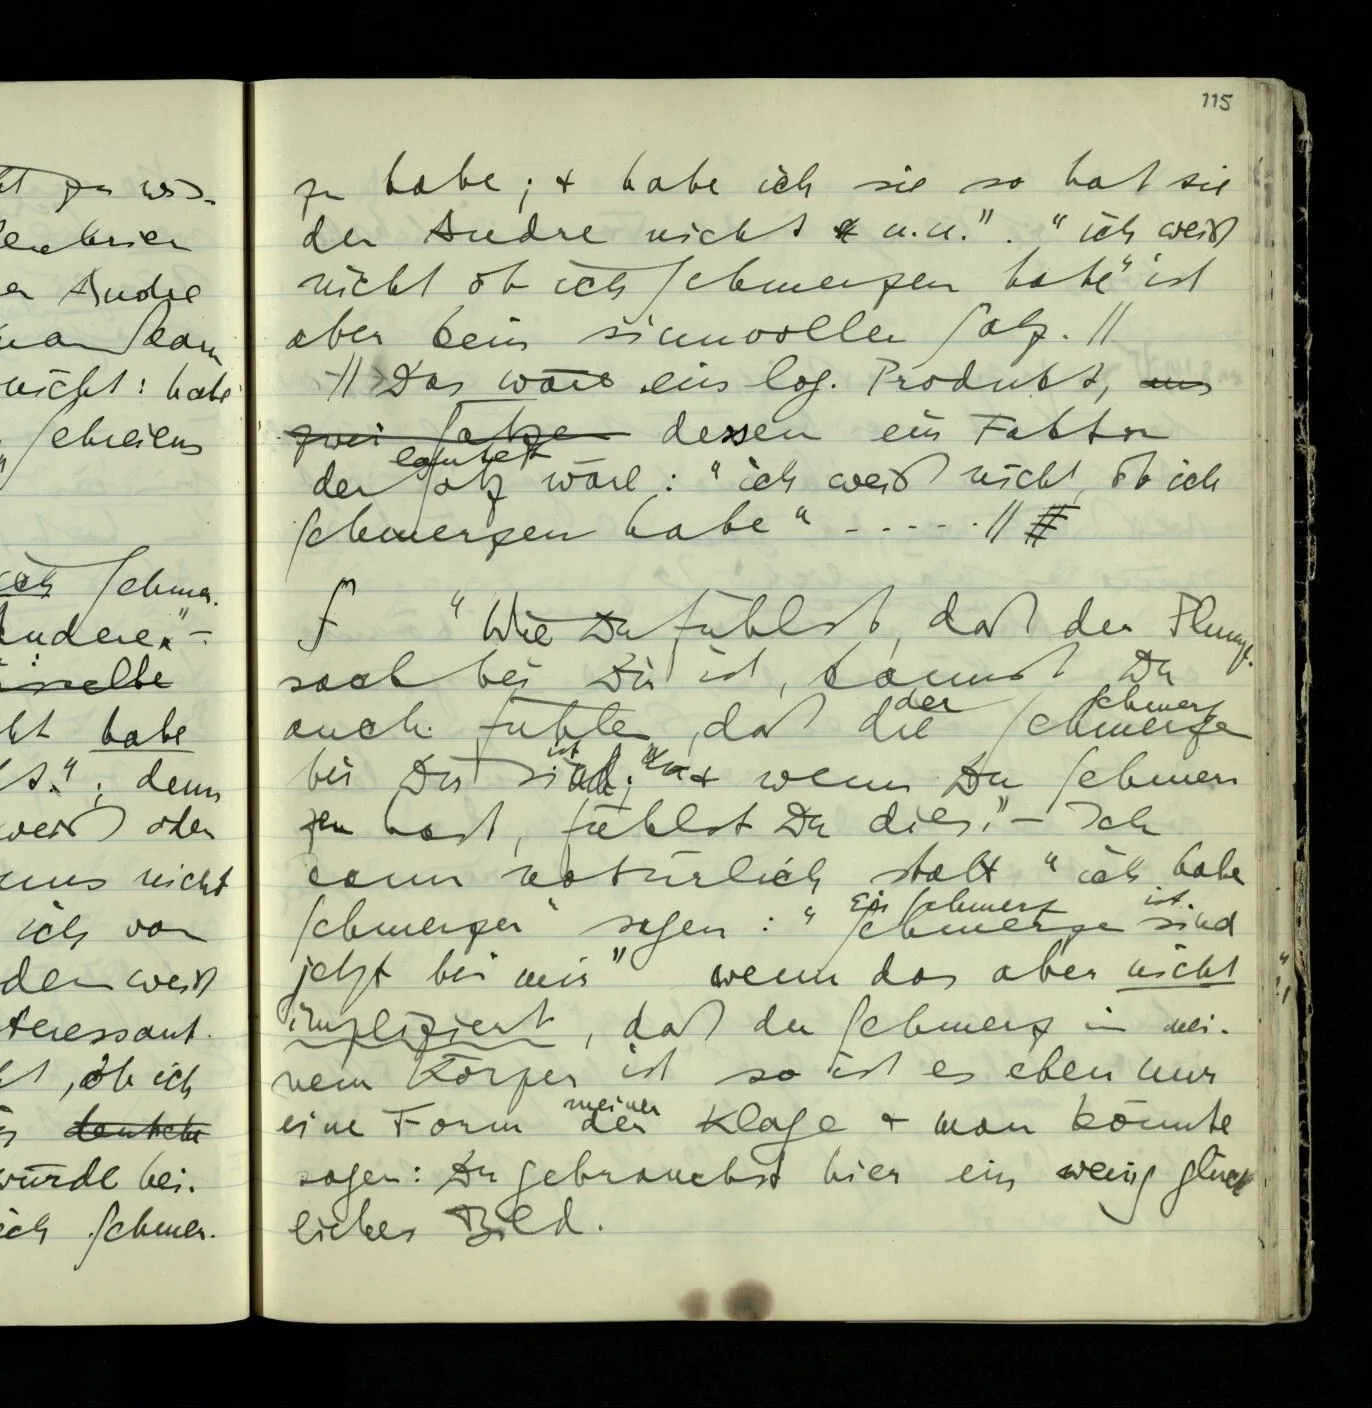 ht zu wis-
Andre
nicht: habe
Schreiens
ich Schmer-
Andere." –
dasselbe
habe
denn
weiß oder
uns nicht
ich von
den weiß
teressant.
ob ich
deutsche
würde bei-
ich Schmer-
115
zu habe; & habe ich sie so hat sie
der Andre nicht u.u.". "ich weiß
nicht ob ich Schmerzen habe" ist
aber kein sinnvoller Satz. //
// Das wäre ein log. Produkt, aus
zwei Sätzen dessen ein Faktor
der Satz wäre: "ich weiß nicht, ob ich
Schmerzen habe" - - - - - . //
∫ "Wie Du fühlst, daß der
sack bei Dir ist, kannst Du
der Schmerz
auch fühlen, daß die Schmerze
ist
bei Dir sind; & wenn Du Schmer
zen hast, fühlst Du dies." – Ich
kann natürlich statt "ich habe
Ein Schmerz ist
Schmerzen" sagen: "Schmerzen sind
jetzt bei mir" wenn das aber nicht
impliziert, daß der Schmerz in mei-
nem Körper ist so ist es eben nur
meiner
eine Form der Klage & man könnte
sagen: Du gebrauchst hier ein wenig glück
liches Bild.